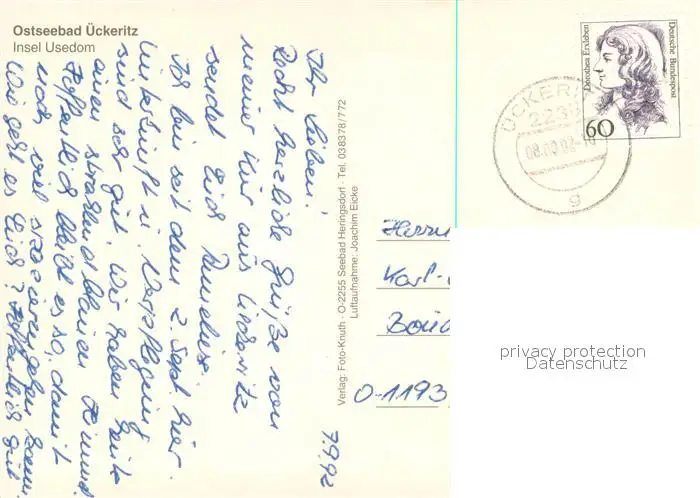 Ostseebad Ückeritz
Insel Usedom
7.9.92
Ihr Lieben!
Recht herzliche Grüße von
meiner Kur aus Ückeritz
sendet Euch Anneliese.
Ich bin seit dem 2. Sept. hier.
Unterkunft u. Verpflegung
sind sehr gut. Wir haben heute
einen strahlend blauen Himmel
Hoffentlich bleibt es so, damit
noch viel spazierengehen kann.
Wie geht es Euch? Hoffentlich gut.
Verlag: Foto-Knuth · O-2255 Seebad Heringsdorf · Tel. 038378/772
Luftaufnahme: Joachim Eicke
Dorothea Erxleben
Deutsche Bundespost
60
ÜCKERITZ
2235
g
Herrn
Karl-
O-1193
privacy protection
Datenschutz